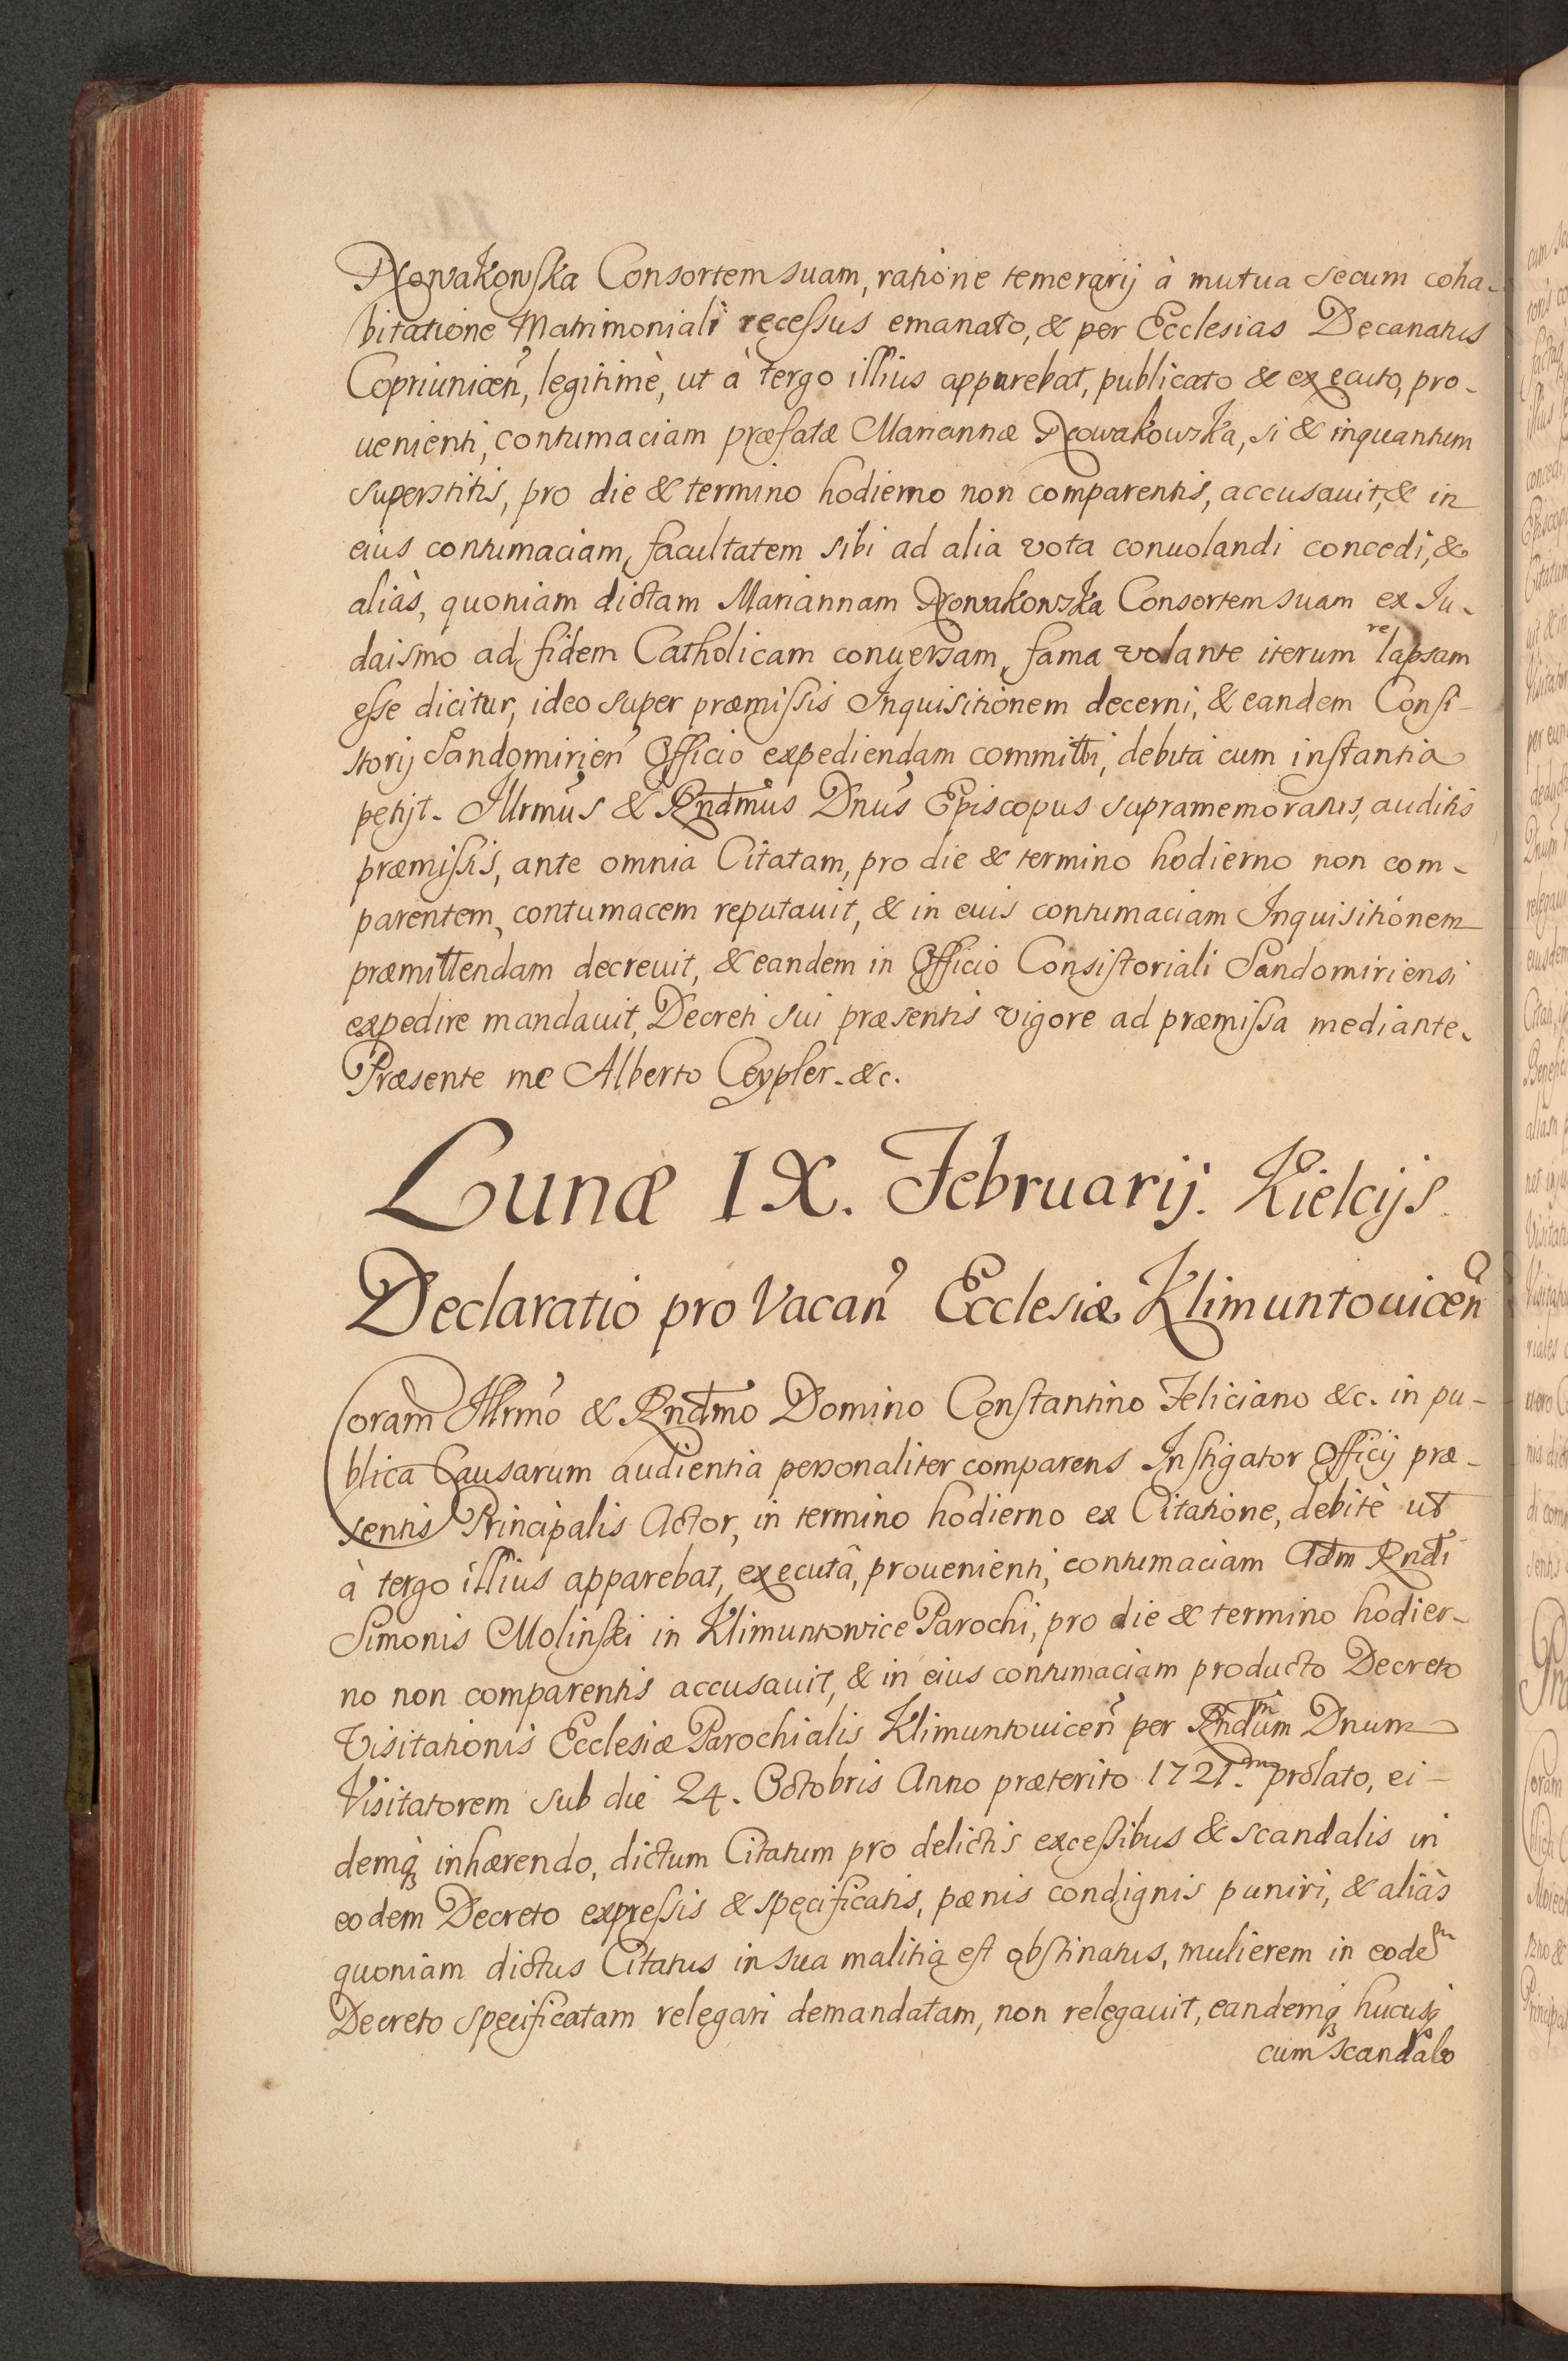 Nowakowska Consortem suam, ratione temerarij à mutua secum coha-
bitatione Matrimoniali recessus emanato, & per Ecclesias Decanatus
Copriunicen̄, legitimè, ut à tergo illius apparebat, publicato & executo, pro-
uenienti, contumaciam præfatæ Mariannæ Nowakowska, si & inquantum
superstitis, pro die & termino hodierno non comparentis, accusauit, & in
eius contumaciam, facultatem sibi ad alia vota conuolandi concedi, &
aliàs, quoniam dictam Mariannam Nowakowska Consortem suam ex Ju-
daismo ad fidem Catholicam conuersam, fama volante iterum relapsam
esse dicitur, ideo super præmissis Inquisitionem decerni, & eandem Consi-
storij Sandomirien̄ Officio expediendam committi, debita cum instantia
petijt. Illrmus & Rndmus Dnus Episcopus supramemoratus, auditis
præmissis, ante omnia Citatam, pro die & termino hodierno non com-
parentem, contumacem reputauit, & in euis contumaciam Inquisitionem
præmittendam decreuit, & eandem in Officio Consistoriali Sandomiriensi
expedire mandauit, Decreti sui præsentis vigore ad præmissa mediante.
Præsente me Alberto Ceypler. &c.
Lunæ IX. Februarij. Kielcijs.
Declaratio pro Vacan̄ Ecclesiæ Klimuntouicen̄
Coram Illrmo & Rndmo Domino Constantino Feliciano &c. in pu-
blica Causarum audientia personaliter comparens Instigator Officij præ-
sentis Principalis Actor, in termino hodierno ex Citatione, debitè ut
à tergo illius apparebat, executâ, prouenienti, contumaciam Adm Rndi
Simonis Molinski in Klimuntowice Parochi, pro die & termino hodier-
no non comparentis accusauit, & in eius contumaciam producto Decreto
Visitationis Ecclesiæ Parochialis Klimuntouicen̄ per Rndum Dnum
Visitatorem sub die 24. Octobris Anno præterito 1721. prolato, ei-
demq́ꝫ inhærendo, dictum Citatum pro delictis excessibus & scandalis in
eodem Decreto expressis & specificatis, pænis condignis puniri, & aliàs
quoniam dictus Citatus in sua malitia est obstinatus, mulierem in eodem
Decreto specificatam relegari demandatam, non relegauit, eandemq́ꝫ hucusq́ꝫ
cum scandalo